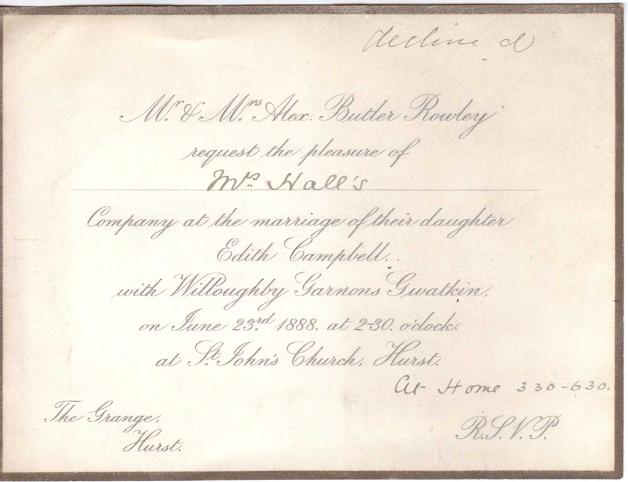 declined
Mr & Mrs Alex. Butler Rowley
request the pleasure of
Mrs Hall's
Company at the marriage of their daughter
Edith Campbell.
with Willoughby Garnons Gwatkin.
on June 23rd 1888. at 2-30. o'clock.
at St John's Church, Hurst.
At Home 330-630.
The Grange,
Hurst.
R.S.V.P.